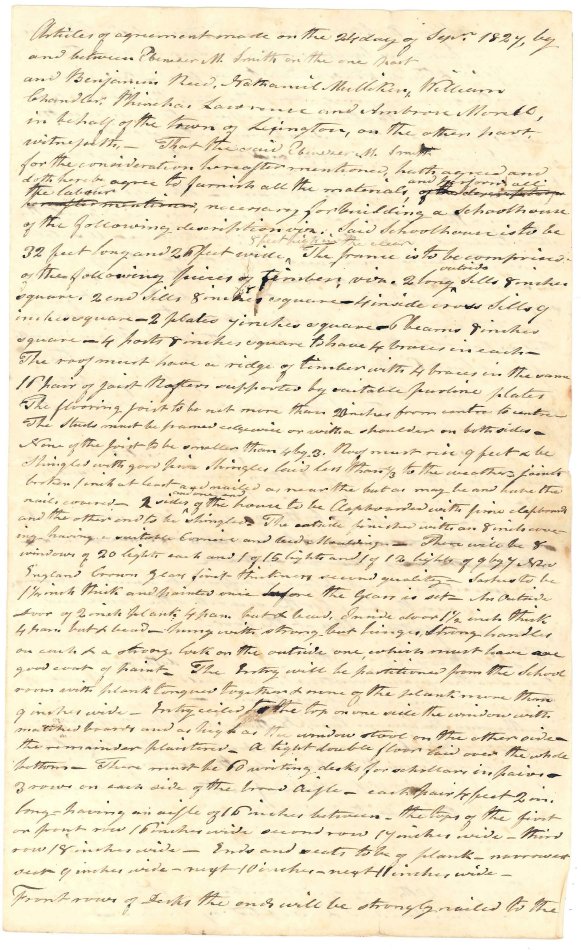 Articles of agreement made on the 24 day of Sepr. 1827, by
and between Ebenezer M. Smith on the one part
and Benjamin Reed, Nathaniel Mulliken, William
Chandler, Phinehas Lawrence and Ambrose Morell,
in behalf of the town of Lexington, on the others part,
witnesseth. – That the said Ebenezer M. Smith
for the consideration hereafter mentioned, hath agreed and
doth hereby agree to furnish all the materials, and perform all
the labour necessary for building a Schoolhouse
of the following description viz. Said Schoolhouse is to be
8 feet high in the clear
32 feet long and 26 feet wide. The frame is to be comprised
of the following pieces of timber, viz. 2 long outside Sills 8 inches
square. 2 end Sills 8 inches square – 4 inside cross Sills 9
inches square – 2 plates 7 inches square – 6 beams 8 inches
square – 4 posts 8 inches square to have 4 braces in each –
The roof must have a ridge of timber with 4 braces in the same
16 pair of joist Rafters supported by suitable purline plates
The flooring joist to be not more than 20 inches from centre to centre
The Studs must be framed edgewise or with a shoulder on both sides –
None of the Joist to be smaller than 4 by 3. Roof must rise 9 feet & be
Shingled with good pine Shingles laid less than 1/3 to the weather – joints
broken inch at least and nailed as near the but as may be and have the
nails covered – 2 sides and one end of the house to be Clapboarded with pine clapboards
and the other end to be Shingled – The outside finished with an 8 inch cover-
ing having a suitable Cornice and bed Moulding – There will be 8
windows of 20 lights each and 1 of 15 lights and 1 of 12 lights of 9 by 7 New
England Crown Glass first thickness second quality – Sashes to be
1 1/2 inch thick and painted once before the Glass is set – An Outside
door of 2 inch plank 4 pan. but & bead, Inside door 1 1/2 inch thick
4 pan but & bead – hung with strong but hinges, Strong handles
on each & a strong lock on the outside one, which must have one
good coat of paint – The Entry will be partitioned from the School
room with plank tongued together & none of the plank more than
9 inches wide – Entry ceiled to the top on one side the window with
matched boards and as high as the window stool on the other side –
the remainder plastered – A tight double floor laid over the whole
bottom – There must be 60 writing desks for schollars in pairs –
3 rows on each side of the broad Aisle – each pair 4 feet 2 in.
long – having an aisle of 16 inches between – the tops of the first
or front row 16 inches wide second row 17 inches wide – third
row 18 inches wide – Ends and seats to be of plank – narrowest
seat 9 inches wide – next 10 inches – next 11 inches wide –
Front rows of Desks the ends will be strongly nailed to the